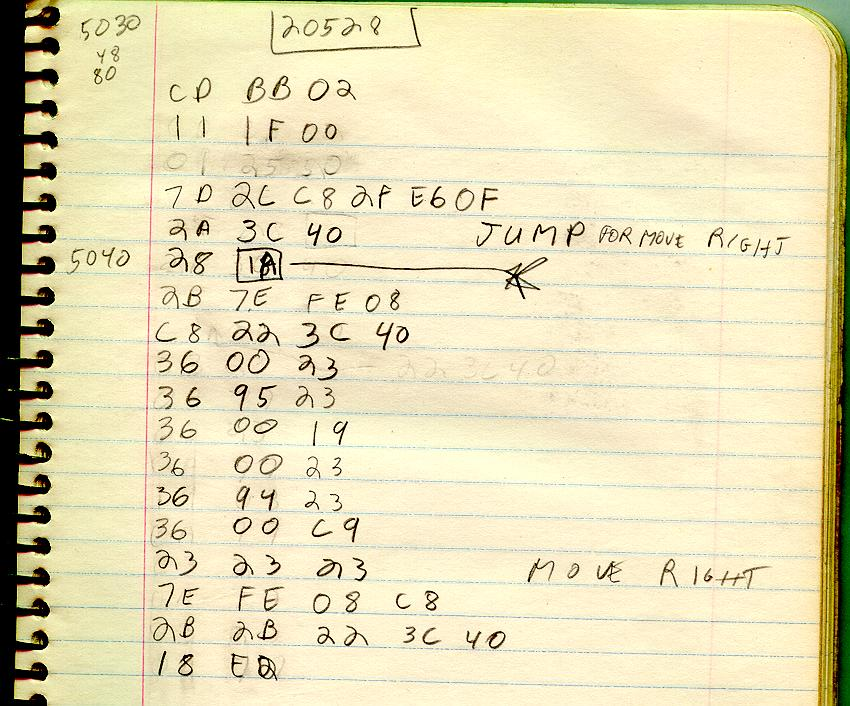 5030 20528
48
80
CD BB 02
11 1F 00
01 25 50
7D 2C C8 2F E6 0F
2A 3C 40 JUMP FOR MOVE RIGHT
5040 28 1A
2B 7E FE 08
C8 22 3C 40
36 00 23 - 22 3C 40
36 95 23
36 00 19
36 00 23
36 94 23
36 00 C9
23 23 23 MOVE RIGHT
7E FE 08 C8
2B 2B 22 3C 40
18